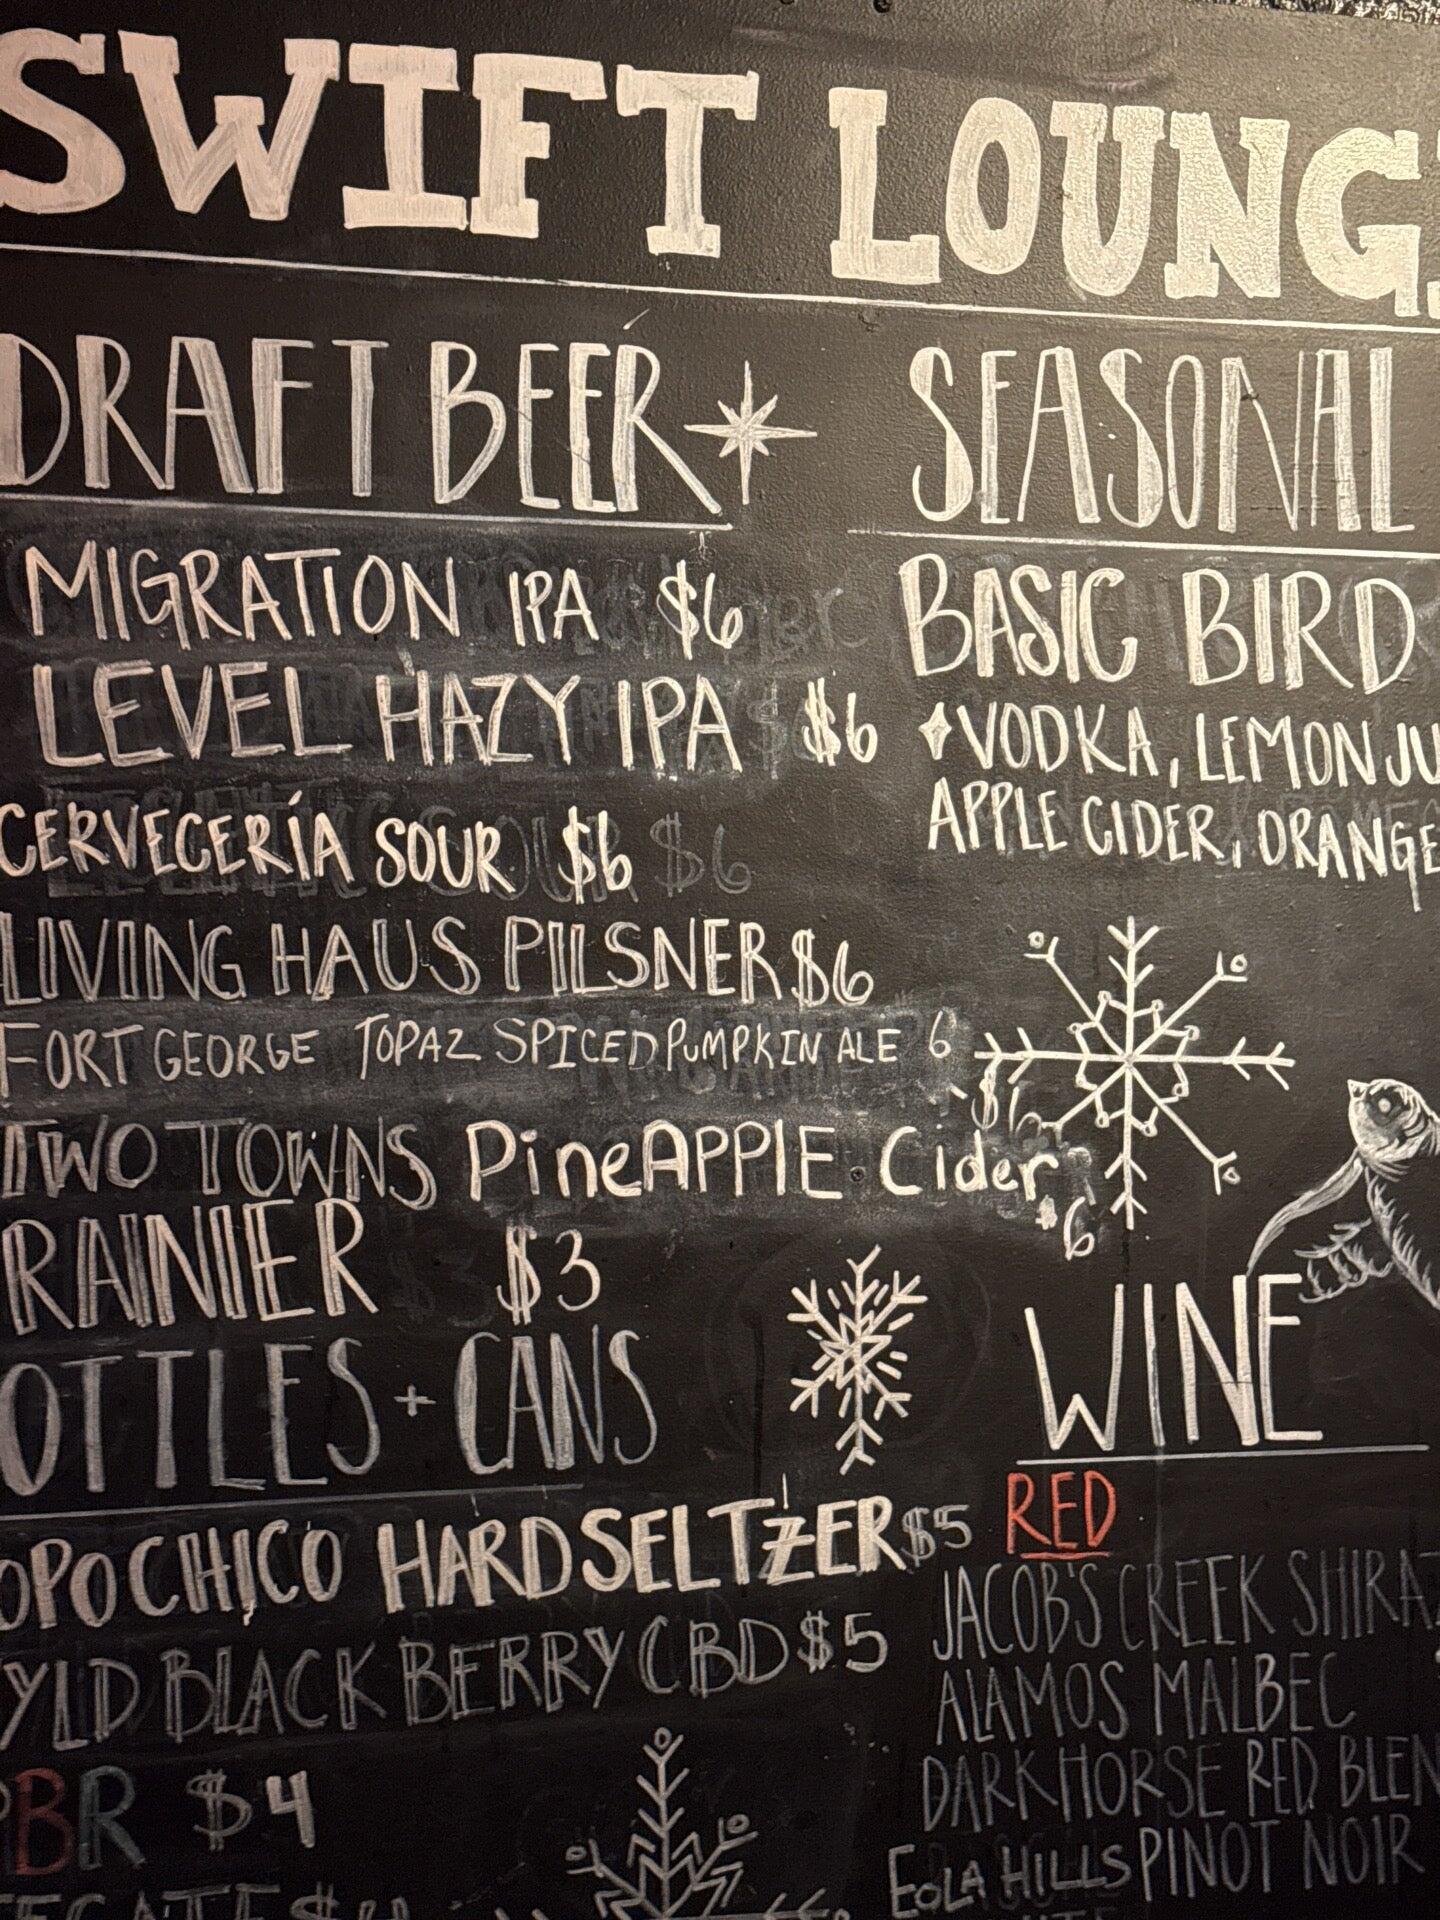 SWIFT LOUNG
DRAFT BEER
MIGRATION IPA $6
LEVEL HAZY IPA $6
CERVECERÍA SOUR $6
LIVING HAUS PILSNER $6
FORT GEORGE TOPAZ SPICED PUMPKIN ALE 6
TWO TOWNS PineAPPlE Cider
$6
RAINIER $3
OTTLES + CANS
OPO CHICO HARD SELTZER $5
YLD BLACK BERRY CBD $5
PBR $4
SEASONAL
BASIC BIRD
VODKA, LEMON JU
APPLE CIDER, ORANGE
WINE
RED
JACOB'S CREEK SHIRAZ
ALAMOS MALBEC
DARKHORSE RED BLEN
EOLA HILLS PINOT NOIR